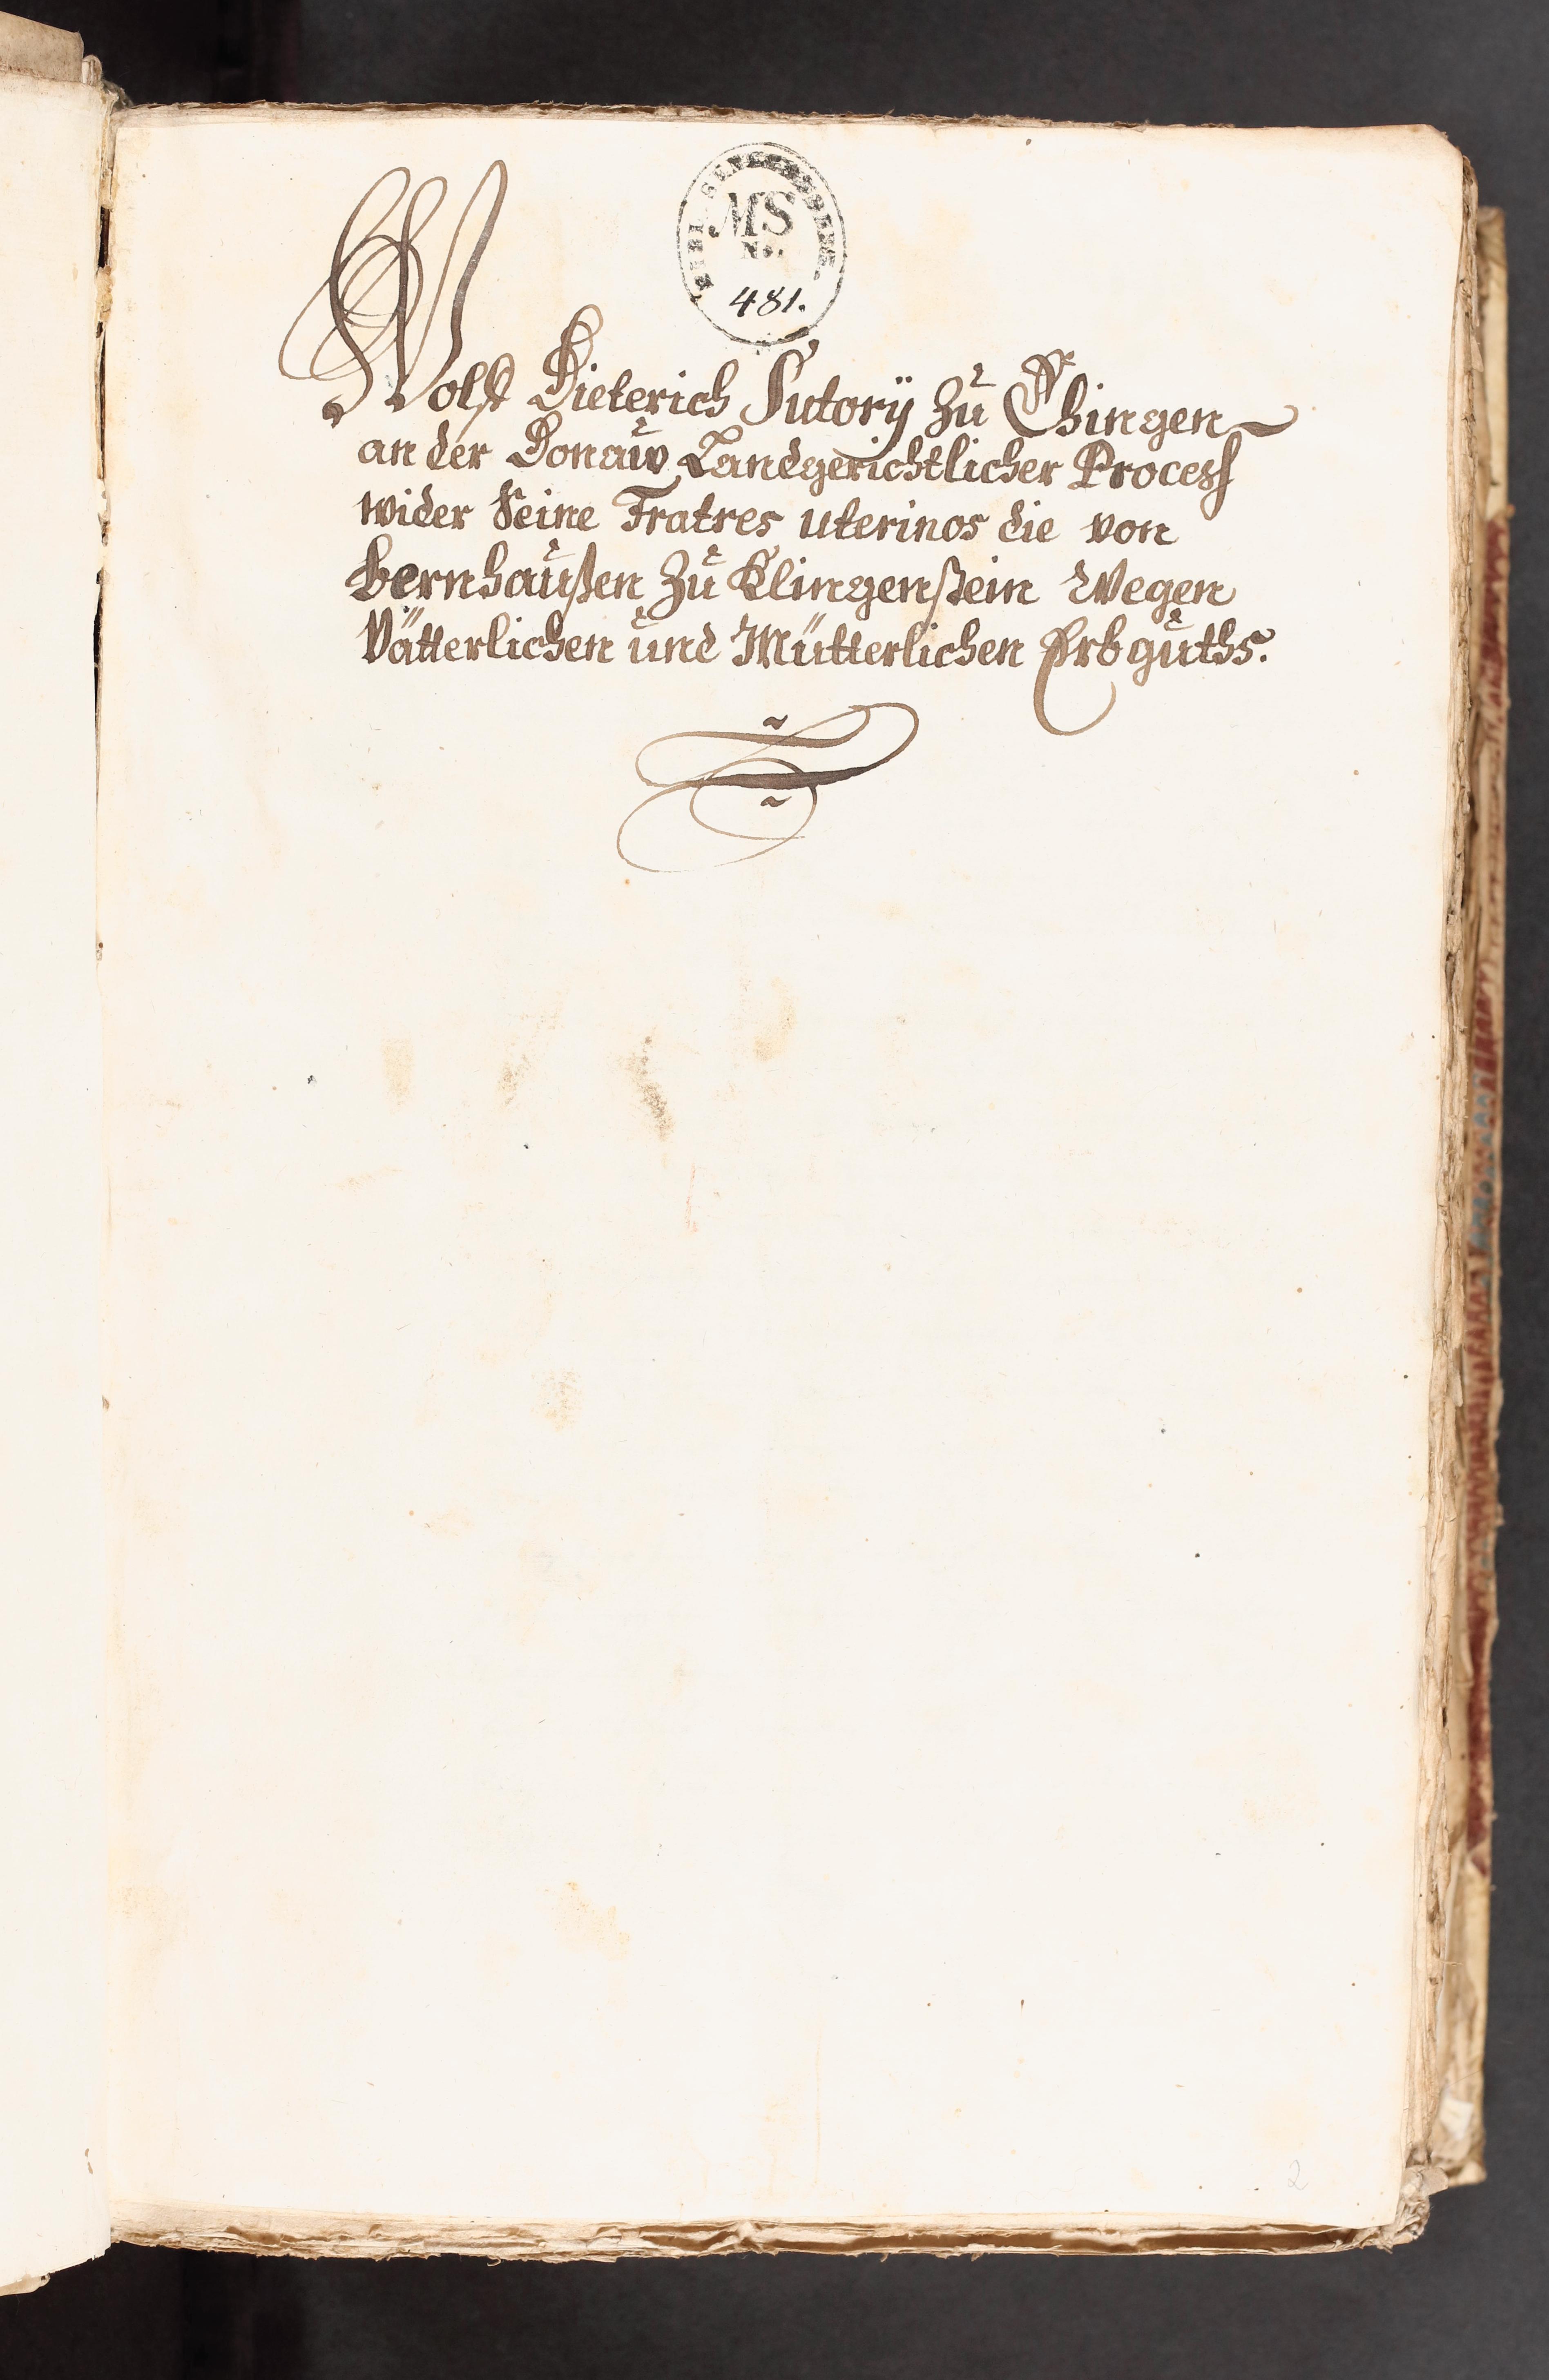 MS
No.
481.
Wolff Dieterich Sutorÿ Zů Ehingen
an der Donaůw Landgerichtlicher Process
wider Seine Fratres uterinos die von
Bernhaůßen Zů Klingenstein Wegen
Vätterlichen ůnd Mütterlichen Erbgůths.
2